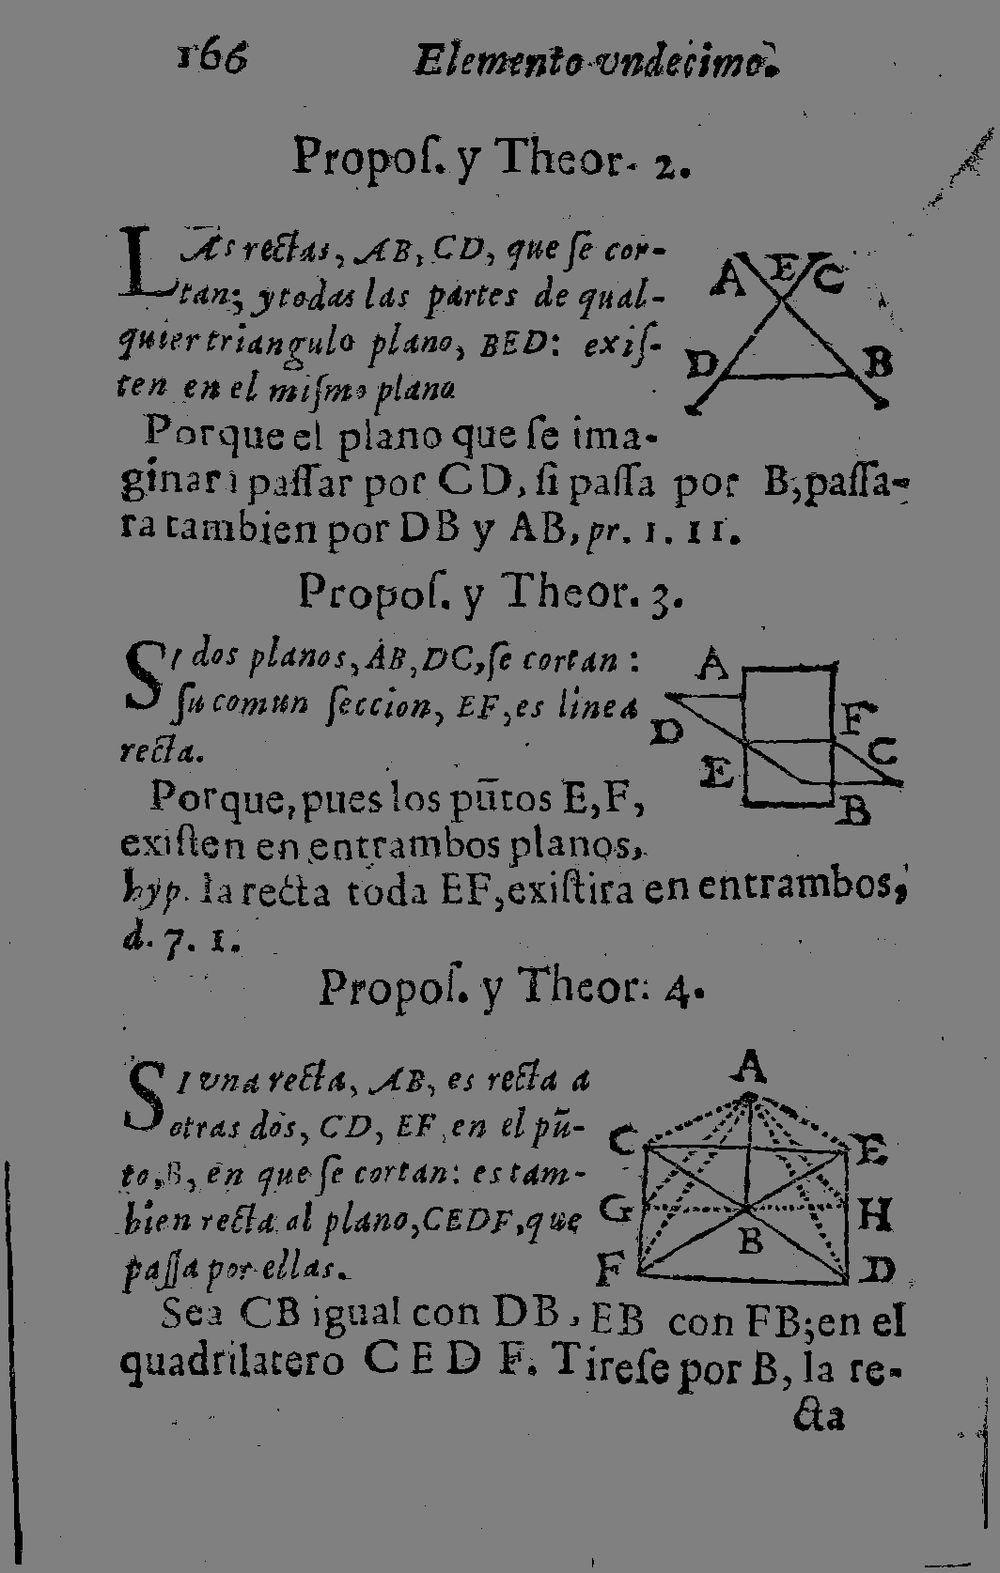 166 Elemento vndecimo.
Propoſ. y Theor. 2.
LAs rectas, AB, CD, que ſe cor-
tan; y todas las partes de qual-
quier triangulo plano, BED: exiſ-
ten en el miſmo plano
A E C
D B
Porque el plano que ſe ima-
ginari paſſar por CD, ſi paſſa por B, paſſa-
ra tambien por DB y AB, pr. 1. 11.
Propoſ. y Theor. 3.
SI dos planos, AB, DC, ſe cortan :
ſu comun ſeccion, EF, es linea
recta.
A
D F
E C
B
Porque, pues los pũtos E, F,
exiſten en entrambos planos,
hyp. la recta toda EF, exiſtira en entrambos,
d. 7. 1.
Propoſ. y Theor: 4.
SI vna recta, AB, es recta a
otras dos, CD, EF, en el pũ-
to, B, en que ſe cortan: es tam-
bien recta al plano, CEDF, que
paſſa por ellas.
A
C E
G H
B
F D
Sea CB igual con DB, EB con FB; en el
quadrilatero CEDF. Tireſe por B, la re-
cta